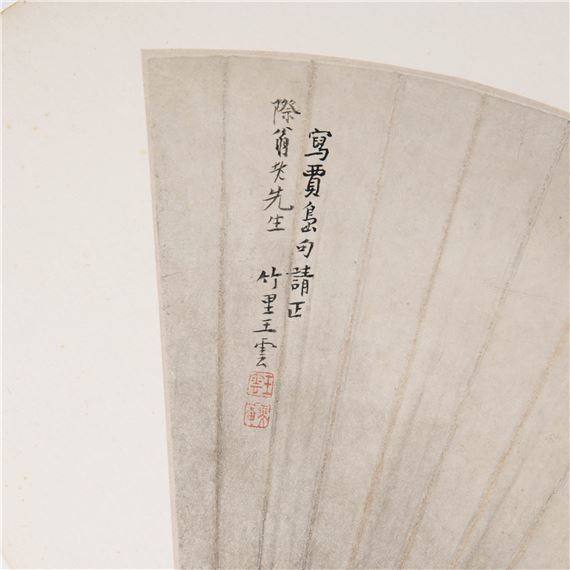 寫賈島句請正
際翁老先生
竹里王雲
王雲